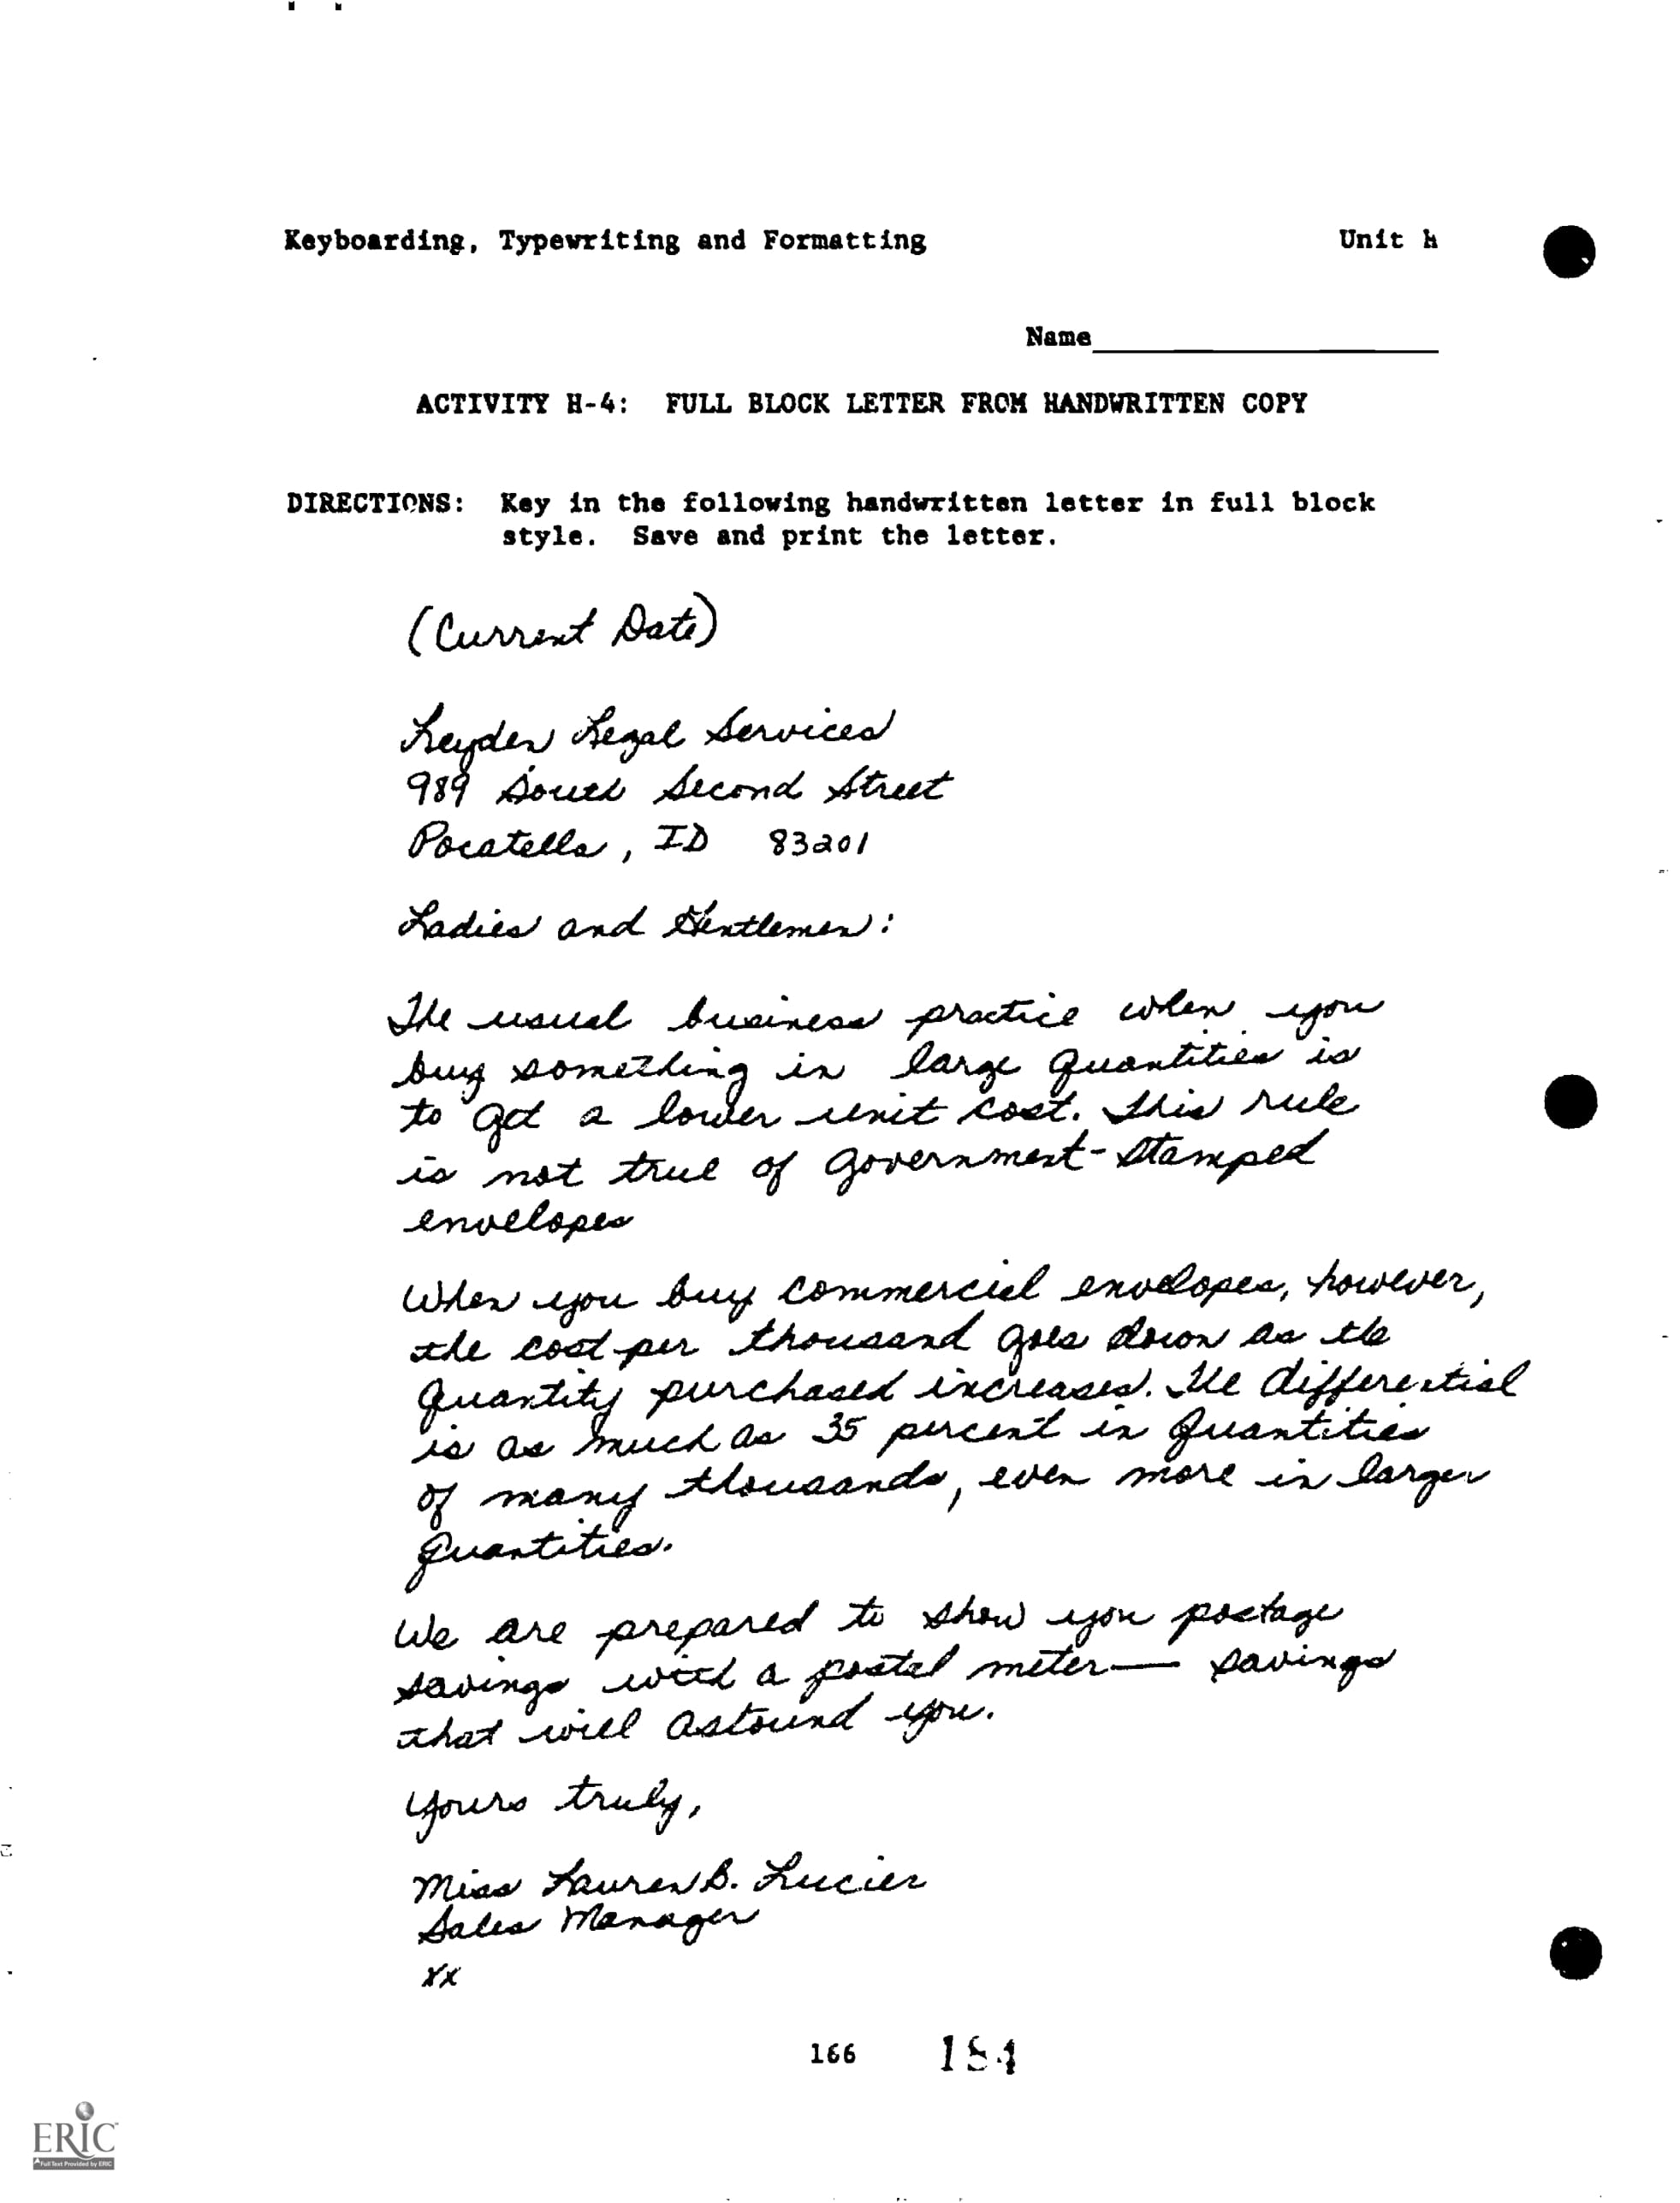 Keyboarding, Typewriting and Formatting Unit H
Name
ACTIVITY H-4: FULL BLOCK LETTER FROM HANDWRITTEN COPY
DIRECTIONS: Key in the following handwritten letter in full block
style. Save and print the letter.
(Current Date)
Leyden Legal Services
989 South Second Street
Pocatello, ID 83201
Ladies and Gentlemen:
The usual business practice when you
buy something in large quantities is
to get a lower unit cost. This rule
is not true of government-stamped
envelopes
When you buy commercial envelopes, however,
the cost per thousand goes down as the
quantity purchased increases. The differential
is as much as 35 percent in quantities
of many thousands, even more in larger
quantities.
We are prepared to show you postage
savings with a postal meter— savings
that will astound you.
Yours truly,
Miss Lauren B. Lucier
Sales Manager
xx
166 184
ERIC
Full Text Provided by ERIC